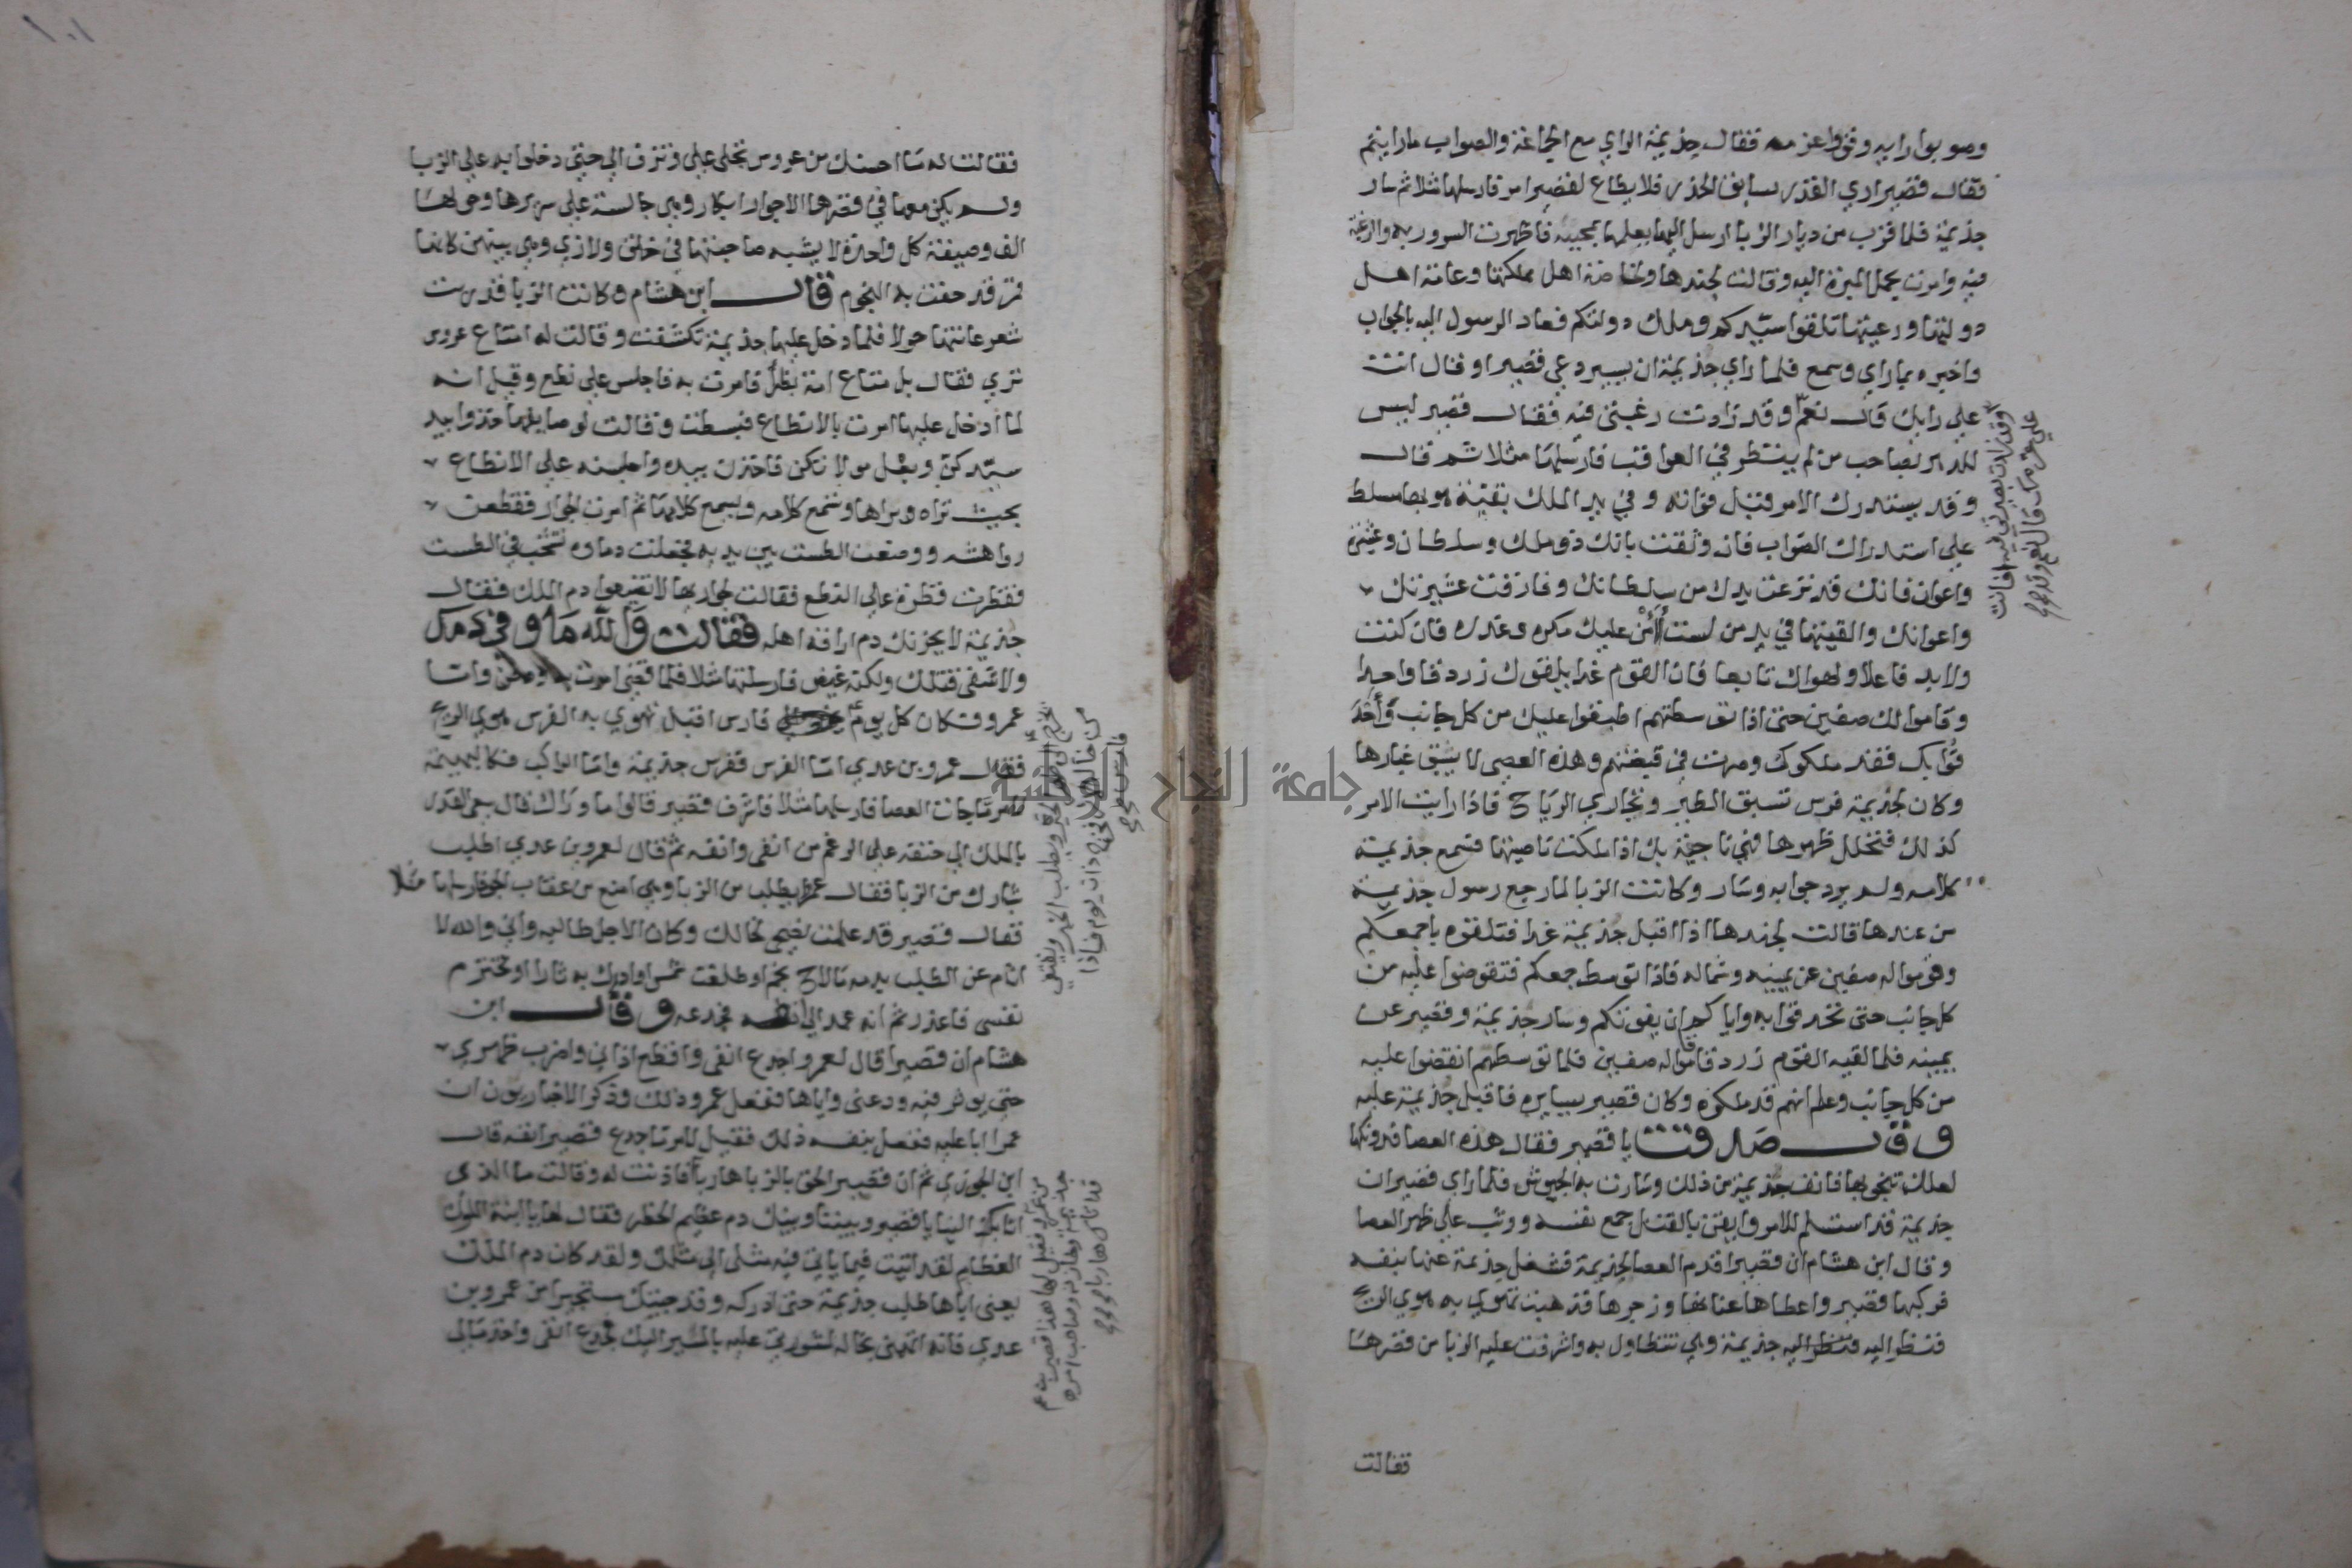 وصوبوا رايه وقووا عزمه فقال جذيمة الراي مع الجماعة والصواب ما رايتم
فقال قصير اري القدر يسابق الحذر فلا يطاع لقصير امر فارسلها مثلا ثم سار
جذيمة فلما قرب من ديار الزبا ارسل اليها يعلمها بمجيئه فاظهرت السرور به والرغبة
فيه وامرت بحمل الميرة اليه وقالت لجندها وخاصة اهل مملكتها وعامة اهل
دولتها ورعيتها تلقوا سيدكم وملك دولتكم فعاد الرسول اليه بالجواب
واخبره بما راي وسمع فلما راي جذيمة ان يسير دعي قصيرا وقال انت
علي رايك قال نعم وقد زادت رغبتي فيه فقال قصير ليس
للدهر بصاحب من لم ينتظر في العواقب فارسلها مثلا ثم قال
وقد يستدرك الامر قبل فواته وفي يد الملك بقية هو بها مسلط
علي استدراك الصواب فان وثقت بانك ذو ملك وسلطان وعشيرة
واعوان فانك قد نزعت يدك من سلطانك وفارقت عشيرتك
واعوانك والقيتها في يد من لست آمن عليك مكره وغدره فان كنت
ولا بد فاعلا ولهواك تابعا فان القوم غدا يلقوك زردقا واحدا
وقاموا لك صفين حتى اذا توسطتهم اطبقوا عليك من كل جانب وأحد
قوا بك فقد ملكوك وصرت في قبضتهم وهذه العصي لا يشق غبارها
وكان لجذيمة فرس تسبق الطير وتجاري الرياح فاذا رايت الامر
كذلك فتخلل ظهرها فهي ناجية بك اذا ملكت ناصيتها فسمع جذيمة
كلامه ولم يرد جوابه وسار وكانت الزبا لما رجع رسول جذيمة
من عندها قالت لجندها اذا اقبل جذيمة غدا فتلقوه باجمعكم
وقوموا له صفين عن يمينه وشماله فاذا توسط جمعكم فتقوضوا عليه من
كل جانب حتى تحدقوا به واياكم ان يفوتكم وسار جذيمة وقصير عن
يمينه فلما لقيه القوم زردقا قاموا له صفين فلما توسطهم انقضوا عليه
من كل جانب وعلم انهم قد ملكوه وكان قصير يسايره فاقبل جذيمة عليه
وقال صدقت يا قصير فقال هذه العصا فدونكها
لعلك تنجى بها فانف جذيمة من ذلك وسارت به الجيوش فلما راي قصير ان
جذيمة قد استسلم للامر وايقن بالقتل جمع نفسه ووثب علي ظهر العصا
وقال ابن هشام ان قصيرا قدم العصا لجذيمة فشغل جذيمة عنها بنفسه
فركبها قصير واعطاها عنانها وزجرها فذهبت تهوي به هوي الريح
فنظر اليه جذيمة وهي تتطاول به واشرفت عليه الزبا من قصرها
فقالت
فقالت له ما احسنك من عروس تجلى علي وتزف الي حتى دخلوا به علي الزبا
ولم يكن معها في قصرها الا جوار ابكار وهي جالسة علي سريرها وحولها
الف وصيفة كل واحدة لا يشبه صاحبتها في خلق ولا زي وهي بينهن كانها
قمر قد حفت به النجوم قال ابن هشام وكانت الزبا قد ربت
شعر عانتها حولا فلما دخل عليها جذيمة تكشفت وقالت له امتاع عروس
تري فقال بل متاع امة بظر فامرت به فاجلس علي نطع وقيل انه
لما ادخل عليها امرت بالانطاع فبسطت وقالت لوصايفها خذوا بيد
سيدكن وبعل مولاتكن فاخذن بيده واجلسنه علي الانطاع
بحيث تراه ويراها وتسمع كلامه ويسمع كلامها ثم امرت الجوار فقطعن
رواهشه ووضعت الطست بين يديه فجعلت دماوه تشخب في الطست
فقطرت قطرة علي النطع فقالت لجواريها لا تضيعوا دم الملك فقال
جذيمة لا يحزنك دم اراقه اهله فقالت والله ما وفى دمك
ولا شفى قتلك ولكنه غيض من فيض فارسلتها مثلا فلما قضى امرت به فدفن واما
عمرو فكان كل يوم فارس اقبل تهوي به الفرس هوي الريح
فقال عمرو بن عدي اما الفرس ففرس جذيمة واما الراكب فكالبهيمة
لامر ما جات العصا فارسلها مثلا فاشرف قصير قالوا ما وراك قال سعى القدر
بالملك الي حتفه علي الرغم من انفي وانفه ثم قال لعمرو بن عدي اطلب
بثارك من الزبا فقال عمرو يطلب من الزبا وهي امنع من عقاب الجو فارسلها مثلا
فقال قصير قد علمت نصحي لخالك وكان الاجل طالبه واني والله لا
انام عن الطلب بدمه ما لاح نجم او طلعت شمس او ادرك به ثارا او تخترم
نفسي فاعذر ثم انه عمد الي انفه فجدعه وقال ابن
هشام ان قصيرا قال لعمرو اجدع انفي واقطع اذاني واضرب ظهري
حتى يوثر فيه ودعني واياها ففعل عمرو ذلك وذكر الاخباريون ان
عمرا ابا عليه ففعل بنفسه ذلك فقيل لامر ما جدع قصير انفه قال
ابن الجوزي ثم ان قصيرا لحق بالزبا هاربا فاذنت له وقالت ما الذي
اتا بك الينا يا قصير وبيننا وبينك دم عظيم الخطر فقال لها يا ابنة الملوك
العظام لقد اتيت فيما ياتي فيه مثلي الي مثلك ولقد كان دم الملك
يعني اباها طلب جذيمة حتى ادركه وقد جيتك مستجيرا من عمرو بن
عدي فانه اتهمني بخاله لمشورتي عليه بالمسير اليك فجدع انفي واخذ مالي
جامعة النجاح الوطنية